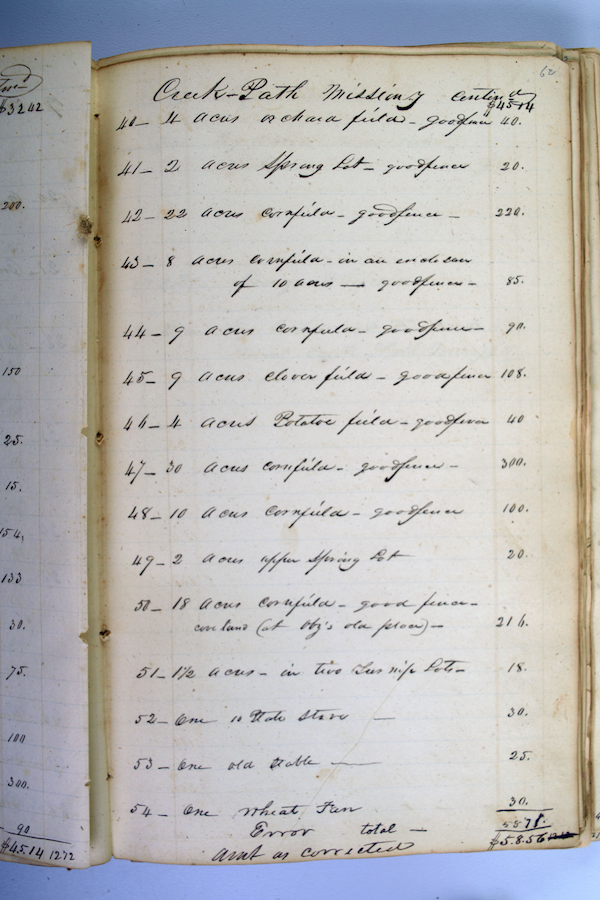 $3242
200.
150
25.
15.
154,
133
30.
75.
100
300.
90
$4514 1272
62
Creek-Path Missiony contind
$4514
40 - 4 acres orchard field - goodfence 40.
41 - 2 acres Spring Lot - goodfence 20.
42 - 22 acres cornfield - goodfence - 220.
43 - 8 acres cornfield - in an enclosure
of 10 acres - goodfence - 85.
44 - 9 acres cornfield - goodfence - 90.
45 - 9 acres clover field - goodfence 108.
46 - 4 acres Potatoe field - goodfence 40
47 - 30 acres cornfield - goodfence - 300.
48 - 10 acres cornfield - goodfence 100.
49 - 2 acres upper Spring Lot 20
50 - 18 acres cornfield - good fence -
cove land (at old place) - 216.
51 - 1 1/2 acres - in two Turnip Lots - 18.
52 - One 10 Plate Stove - 30.
53 - One old Stable - 25.
54 - One Wheat Fan 30.
Error total - 5571.
amt as corrected $5.856